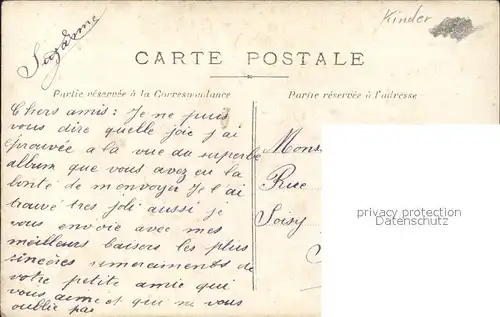 Suzanne
Kinder
CARTE POSTALE
Partie réservée à la Correspondance
Partie réservée à l'adresse
Chers amis : Je ne puis
vous dire quelle joie j'ai
éprouvée a la vue du superbe
album que vous avez eu la
bonté de m envoyer Je l'ai
trouvé tres joli aussi je
vous envoie avec mes
meilleurs baisers les plus
sincères remerciments de
votre petite amie qui
vous aime et qui ne vous
oublie pas
Mons
Rue
Soisy
privacy protection
Datenschutz